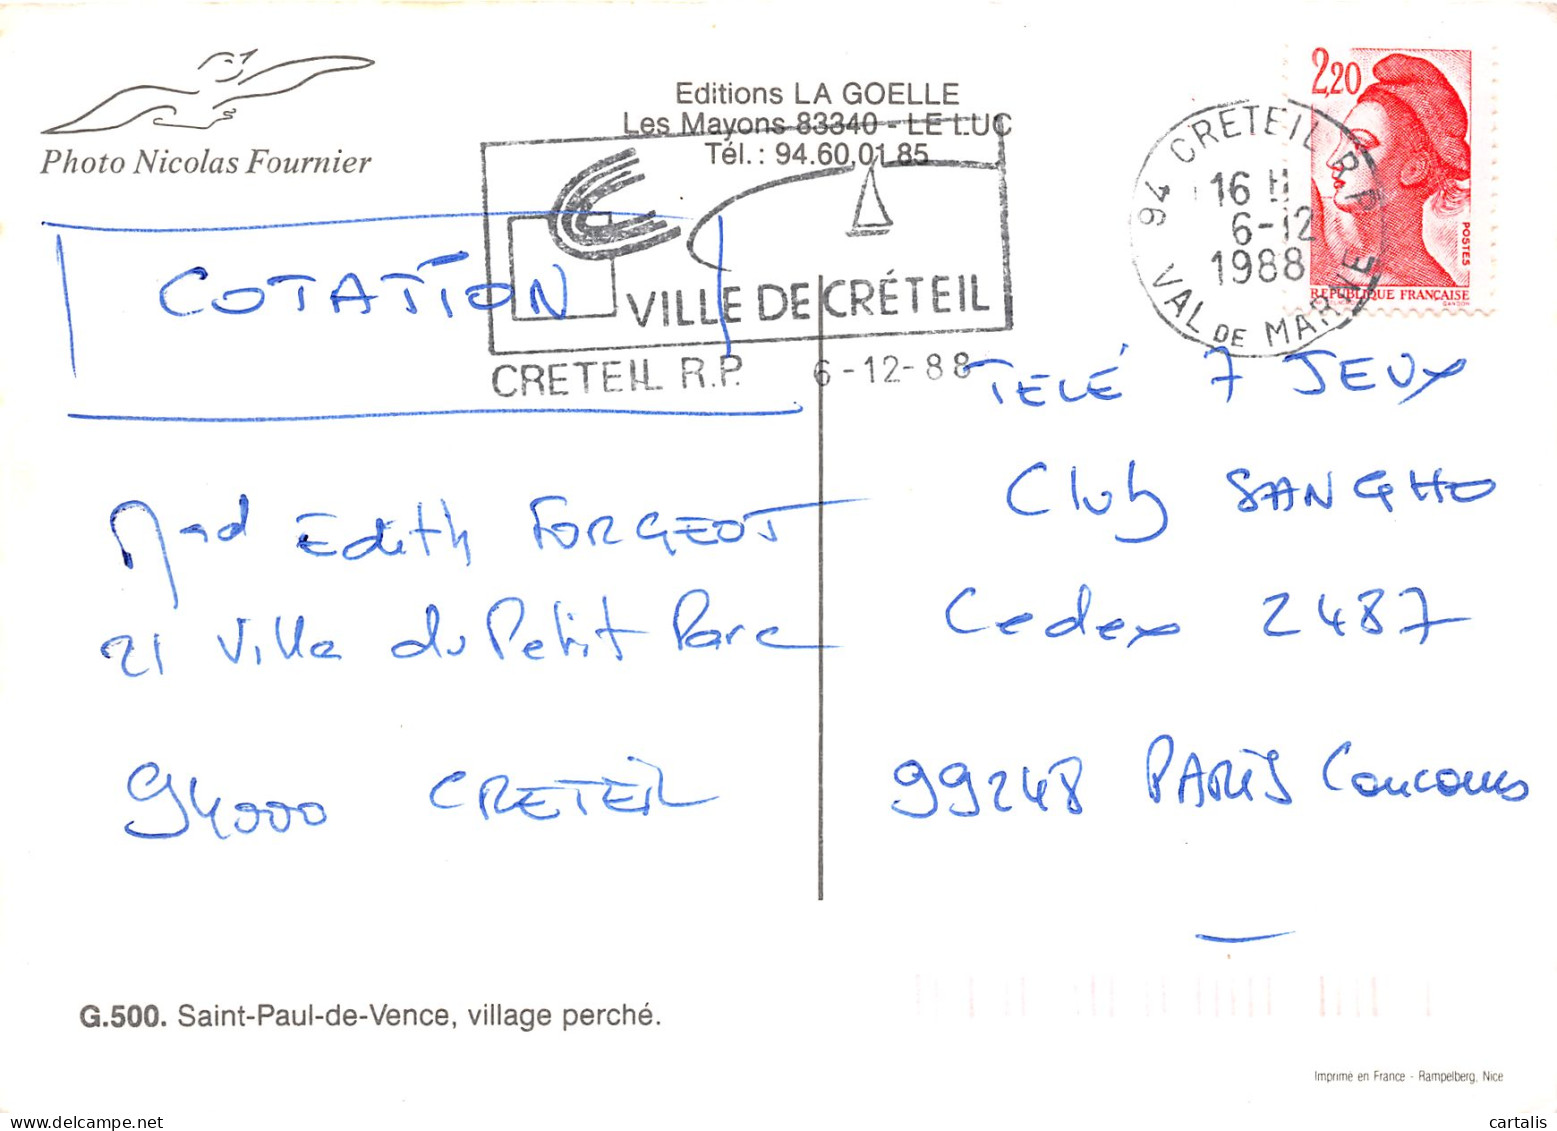 Photo Nicolas Fournier
Editions LA GOELLE
Les Mayons 83340 - LE LUC
Tél. : 94.60.01.85
VILLE DE CRÉTEIL
CRETEIL R.P. 6-12-88
94 CRETEIL R.P.
16 H
6-12
1988
VAL DE MARNE
2,20
POSTES
REPUBLIQUE FRANÇAISE
GANDON
COTATION
Mad Edith FORGEOT
21 Villa du Petit Parc
94000 CRETEIL
TELÉ 7 JEUX
Club SANGHO
Cedex 2487
99248 PARIS Concours
G.500. Saint-Paul-de-Vence, village perché.
Imprimé en France - Rampelberg, Nice
cartalis